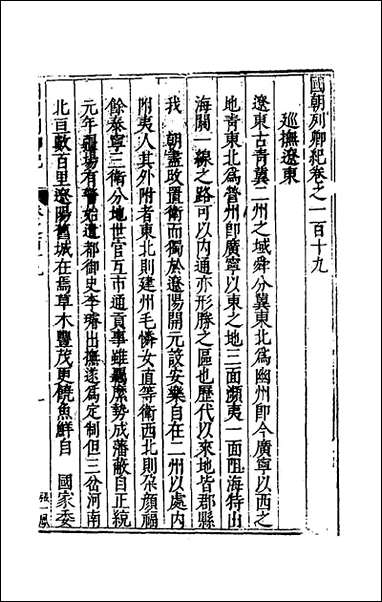 國朝列卿紀卷之一百十九
廵撫遼東
遼東古青冀二州之域舜分冀東北爲幽州即今廣寧以西之
地青東北爲營州即廣寧以東之地三面瀕夷一面阻海特出
海關一線之路可以内通亦形勝之區也歷代以來地皆郡縣
我　朝盡改置衛而獨於遼陽開元設安樂自在二州以處内
附夷人其外附者東北則建州毛憐女直等衛西北則朶顔福
餘泰寧三衛分地世官互市通貢事雖羈縻勢成藩蔽自正統
元年疆場有警始遣都御史李濬出撫遂爲定制但三岔河南
北亘數百里遼陽舊城在焉草木豐茂更饒魚鮮自　國家委